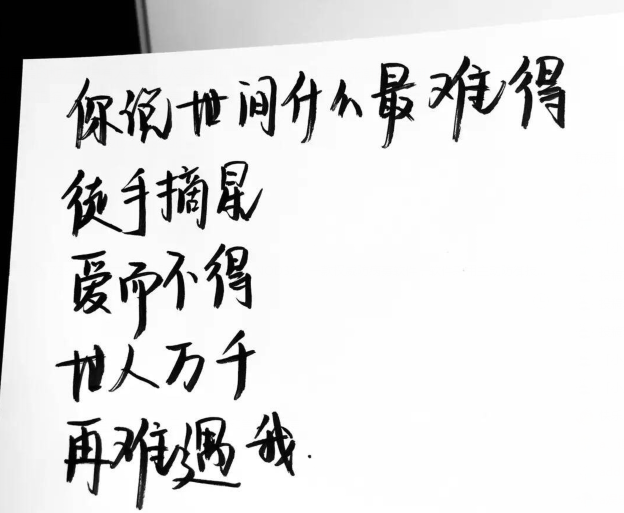 你说世间什么最难得
徒手摘星
爱而不得
世人万千
再难遇我.